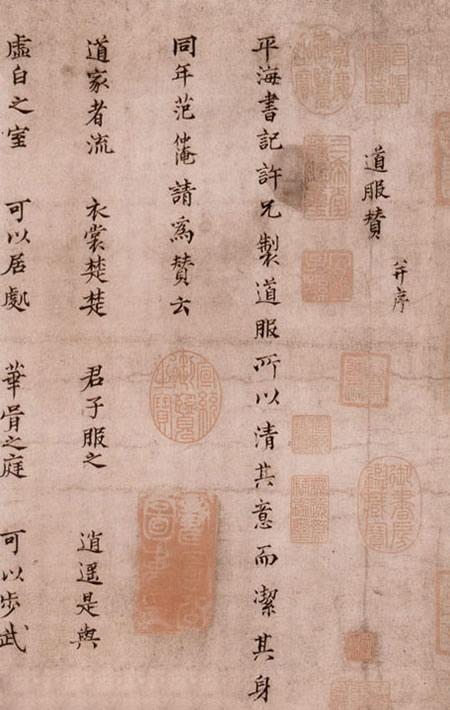 道服贊 并序
平海書記許兄製道服所以清其意而潔其身
同年范仲淹請為贊云
道家者流 衣裳楚楚 君子服之 逍遥是與
虛白之室 可以居處 華胥之庭 可以步武
宣統御覽之寶
御書房鑑藏寶